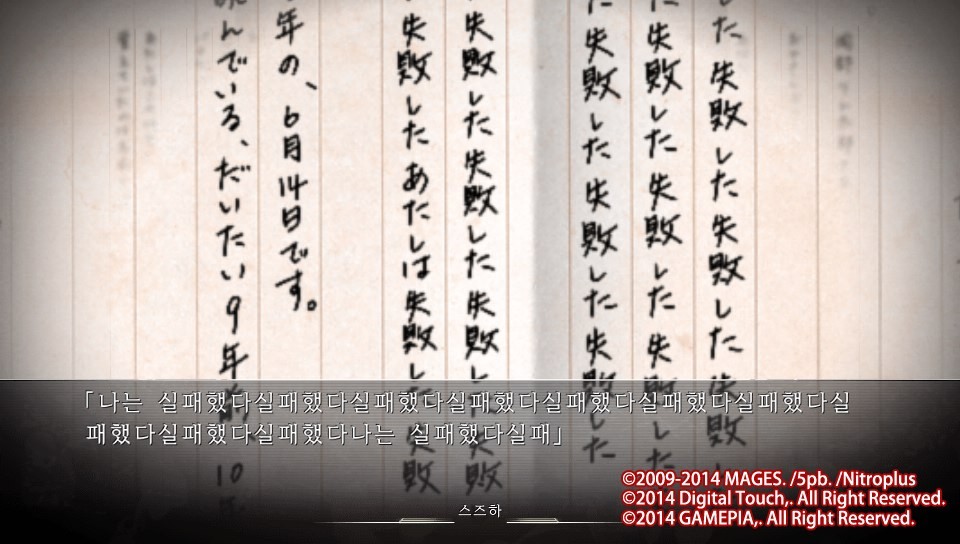 した失敗した失敗した失敗
た失敗した失敗した失敗した
た失敗した失敗した失敗した
失敗した失敗した失敗した失敗
失敗したあたしは失敗した失敗
年の、6月14日です。
んでいる、だいたい9年前、10
「나는 실패했다실패했다실패했다실패했다실패했다실패했다실패했다실
패했다실패했다실패했다나는 실패했다실패」
스즈하
©2009-2014 MAGES. /5pb. /Nitroplus
©2014 Digital Touch,. All Right Reserved.
©2014 GAMEPIA,. All Right Reserved.